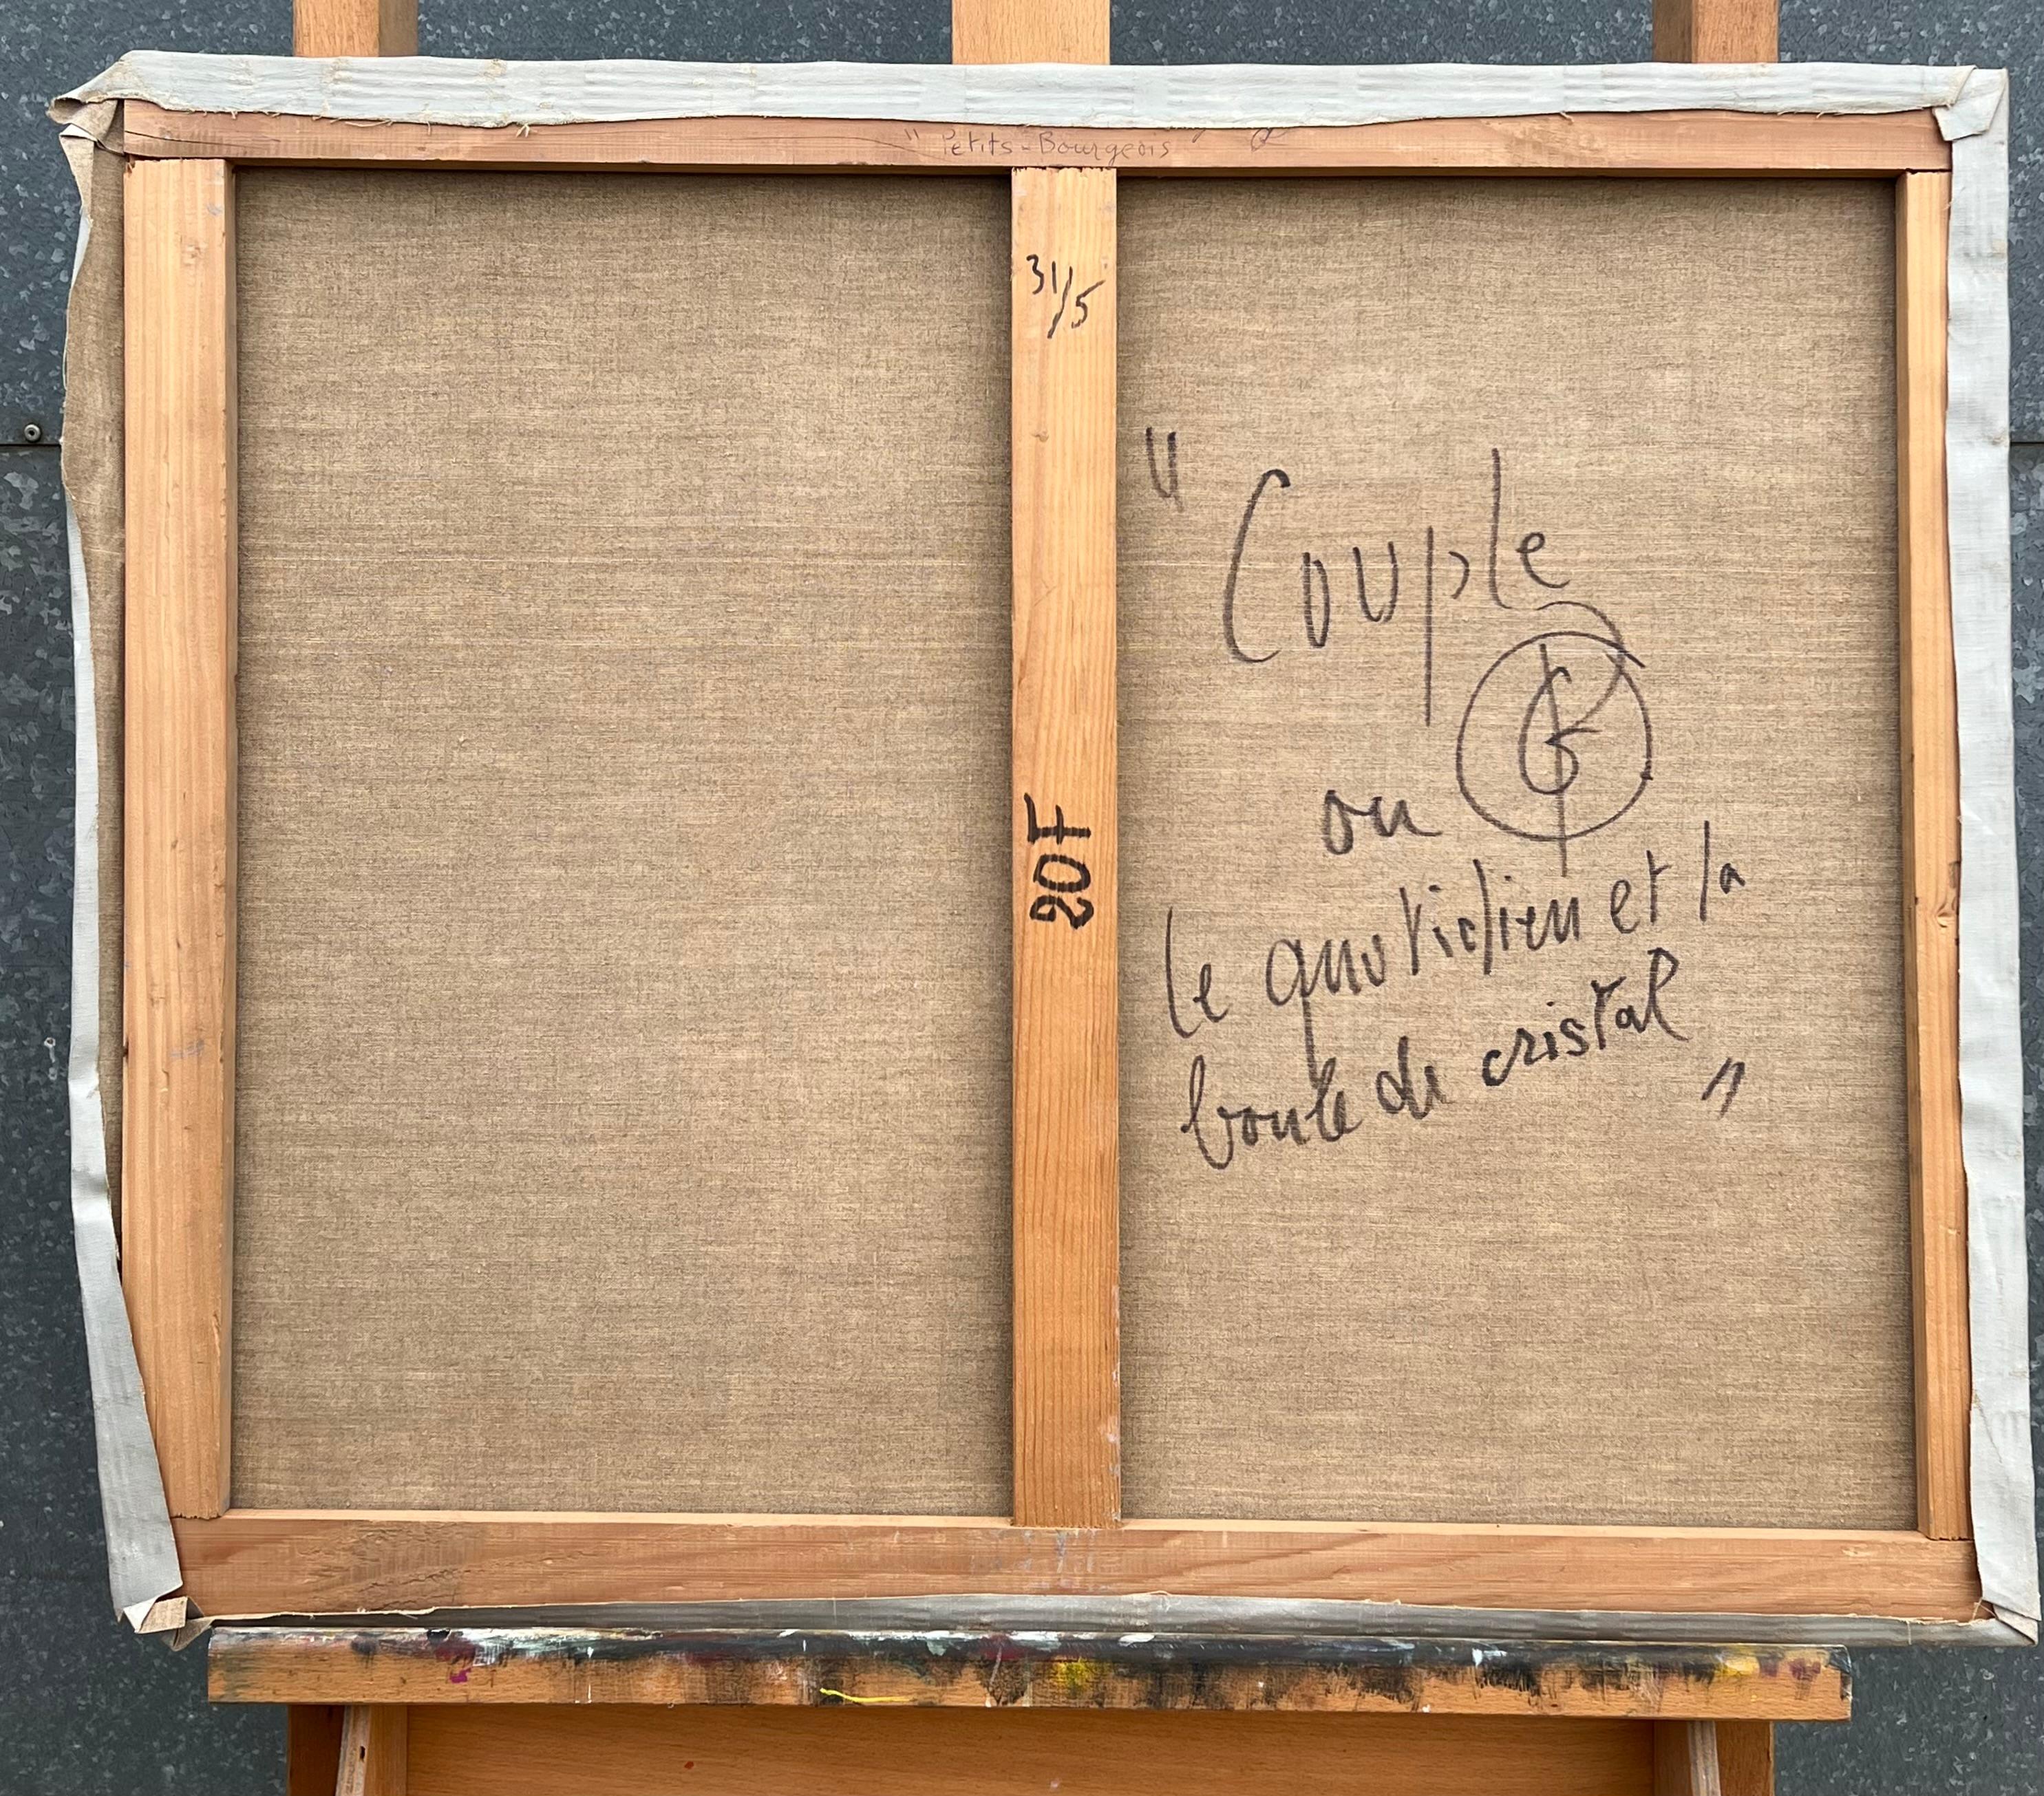 " Petits-Bourgeois "
31/5
20F
" Couple
ou
le quotidien et la
boule de cristal "